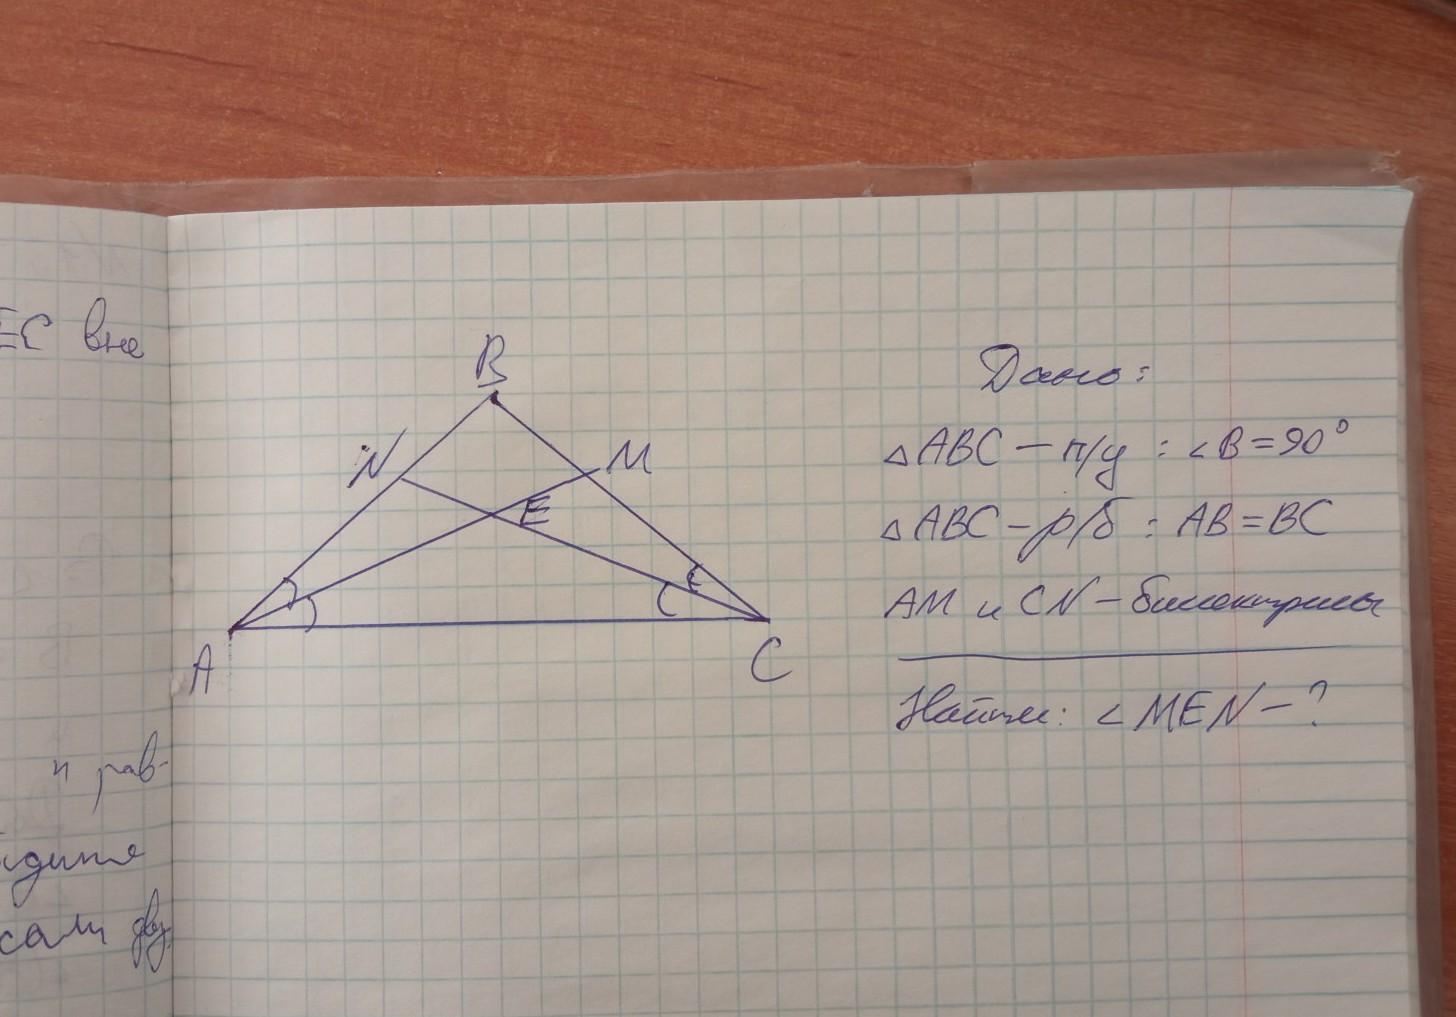 ЕС вне
п рав-
дите
сали дву
B
N
M
E
A
C
Дано:
△ABC – п/у : ∠B = 90°
△ABC – р/б : AB = BC
AM и CN – биссектрисы
Найти: ∠MEN – ?